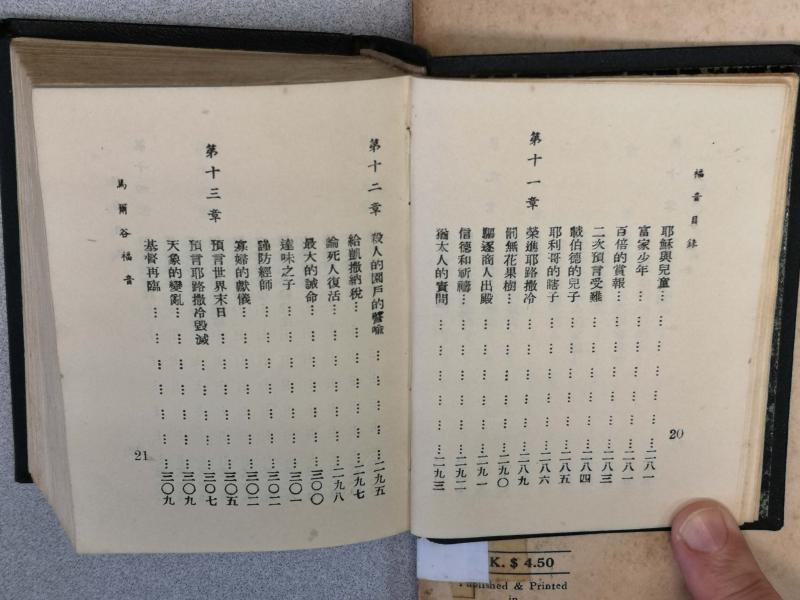 福音目錄
20
耶穌與兒童…………………二八一
富家少年…………………二八一
百倍的賞報…………………二八一
二次預言受難…………………二八三
載伯德的兒子…………………二八四
耶利哥的瞎子…………………二八五
第十一章
榮進耶路撒冷…………………二八九
罰無花果樹…………………二九〇
驅逐商人出殿…………………二九一
信德和祈禱…………………二九二
猶太人的質問…………………二九三
第十二章
殺人的園戶的譬喻…………………二九五
給凱撒納稅…………………二九七
論死人復活…………………二九八
最大的誡命…………………三〇〇
達味之子…………………三〇一
謹防經師…………………三〇二
寡婦的獻儀…………………三〇二
第十三章
預言世界末日…………………三〇五
預言耶路撒冷毀滅…………………三〇七
天象的變亂…………………三〇九
基督再臨…………………三〇九
馬爾谷福音
21
K. $ 4.50
Published & Printed
in